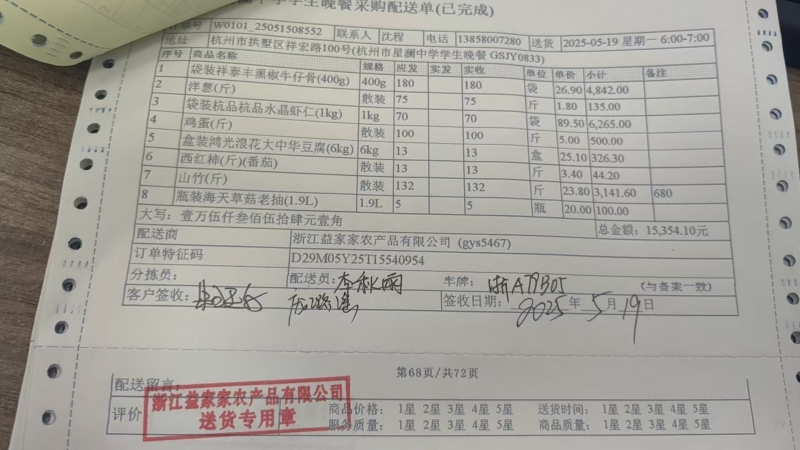 学生晚餐采购配送单(已完成)
W0101_25051508552 联系人 沈程 电话 13858007280 送货 2025-05-19 星期一 6:00-7:00
地址 杭州市拱墅区祥宏路100号(杭州市星澜中学学生晚餐 GSJY0833)
序号 商品名称 规格 应发 实发 实收 单位 单价 小计 备注
1 袋装祥泰丰黑椒牛仔骨(400g) 400g 180 180 袋 26.90 4,842.00
2 洋葱(斤) 散装 75 75 斤 1.80 135.00
3 袋装杭品杭品水晶虾仁(1kg) 1kg 70 70 袋 89.50 6,265.00
4 鸡蛋(斤) 散装 100 100 斤 5.00 500.00
5 盒装鸿光浪花大中华豆腐(6kg) 6kg 13 13 盒 25.10 326.30
6 西红柿(斤)(番茄) 散装 13 13 斤 3.40 44.20
7 山竹(斤) 散装 132 132 斤 23.80 3,141.60 680
8 瓶装海天草菇老抽(1.9L) 1.9L 5 5 瓶 20.00 100.00
大写: 壹万伍仟叁佰伍拾肆元壹角 总金额: 15,354.10元
配送商 浙江益家家农产品有限公司 (gys5467)
订单特征码 D29M05Y25T15540954
分拣员: 配送员: 车牌: 浙A79B05 (与备案一致)
客户签收: 签收日期: 2025年5月19日
第68页/共72页
配送留言:
浙江益家家农产品有限公司
送货专用章
评价 商品价格: 1星 2星 3星 4星 5星 送货时间: 1星 2星 3星 4星 5星
服务质量: 1星 2星 3星 4星 5星 商品质量: 1星 2星 3星 4星 5星